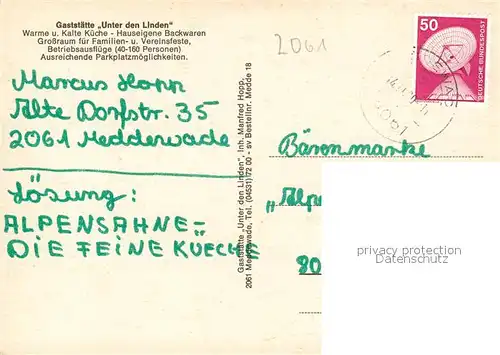 Gaststätte „Unter den Linden"
Warme u. Kalte Küche - Hauseigene Backwaren
Großraum für Familien- u. Vereinsfeste,
Betriebsausflüge (40-160 Personen)
Ausreichende Parkplatzmöglichkeiten.
2061
50
DEUTSCHE BUNDESPOST
Marcus Hopp
Alte Dorfstr. 35
2061 Meddewade
Lösung:
ALPENSAHNE =
DIE FEINE KUECHE
Gaststätte „Unter den Linden", Inh. Manfred Hopp,
2061 Meddewade, Tel. (04531) 72 00 - ev Bestellnr. Medde 18
Bärenmarke
„Alpe
80
privacy protection
Datenschutz